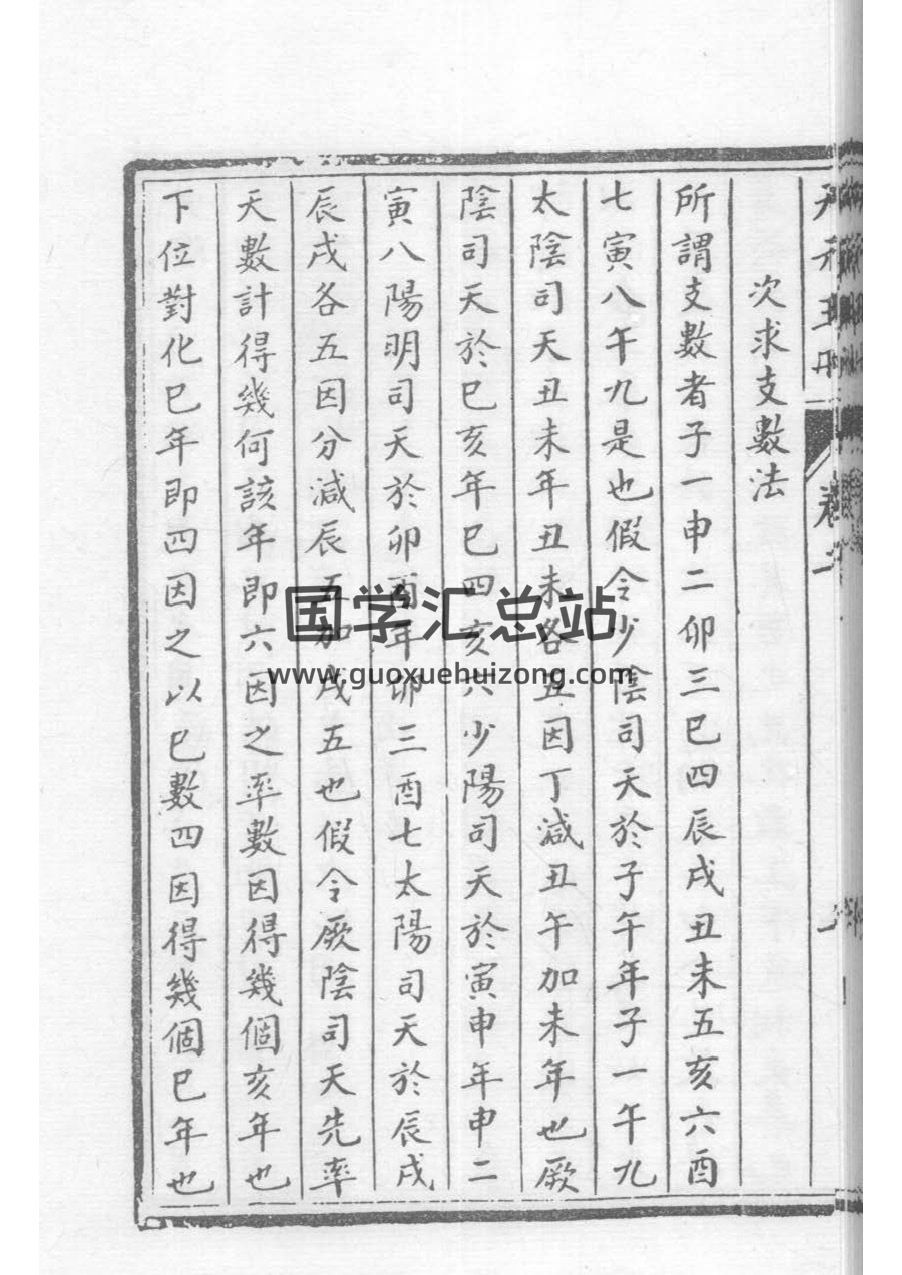 次求支數法
所謂支數者子一申二卯三巳四辰戌丑未五亥六酉
七寅八午九是也假令少陰司天於子午年子一午九
太陰司天丑未年丑未各五因丁減丑午加未年也厥
陰司天於巳亥年巳四亥六少陽司天於寅申年申二
寅八陽明司天於卯酉年卯三酉七太陽司天於辰戌
辰戌各五因分減辰五加戌五也假令厥陰司天先率
天數計得幾何該年即六因之率數因得幾個亥年也
下位對化巳年即四因之以巳數四因得幾個巳年也
国学汇总站
www.guoxuehuizong.com